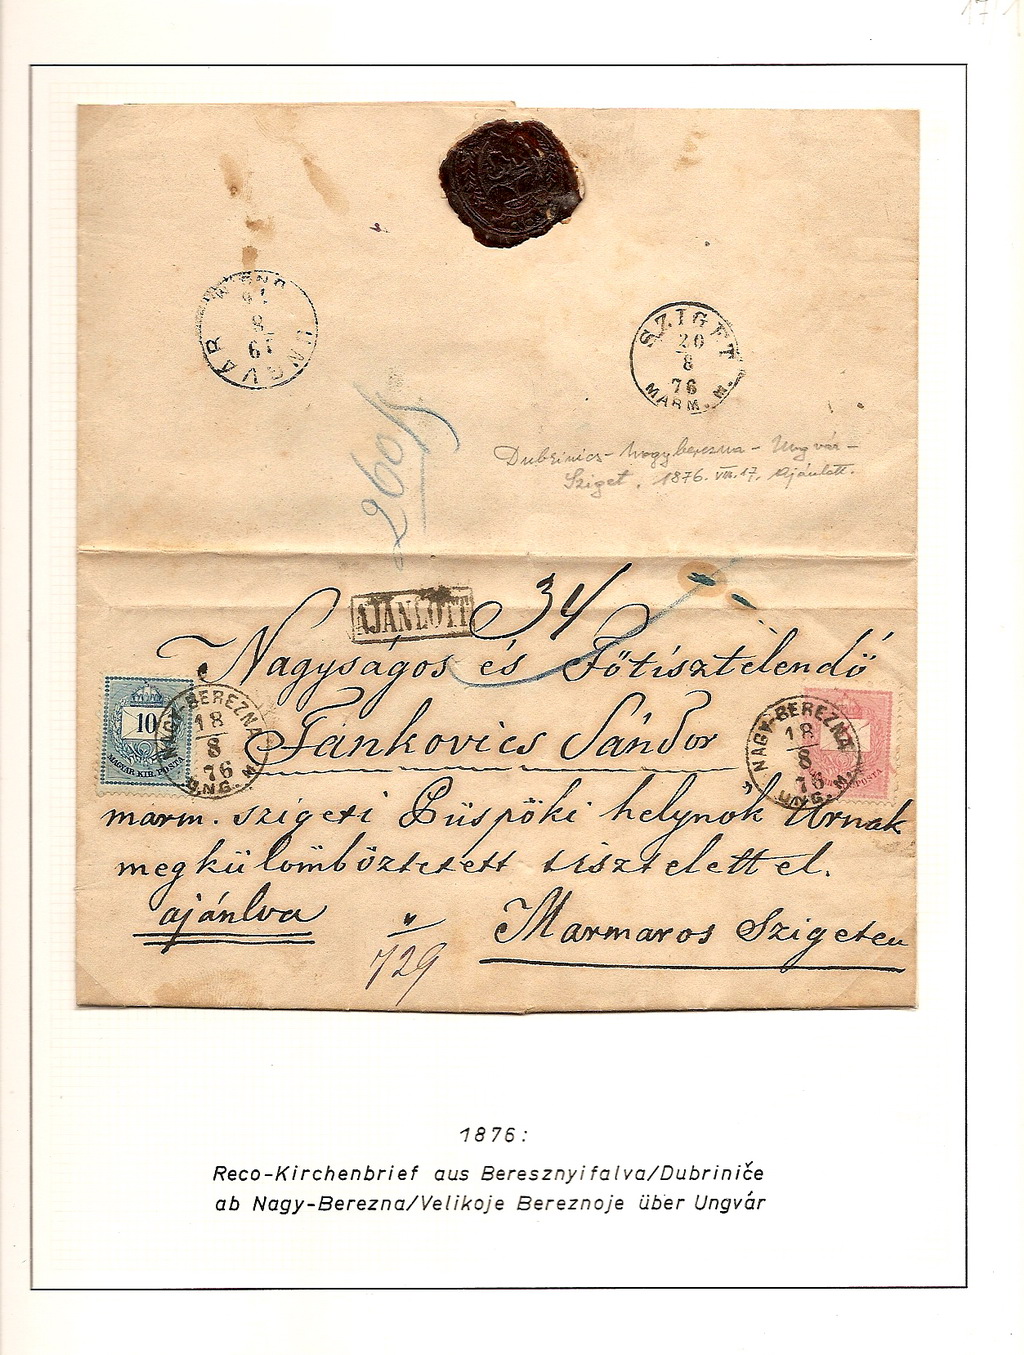 UNGVÁR
19
8
76
SZIGET
20
8
76
MARM. M.
260
Dubrinics - Nagyberezna - Ungvár -
Sziget. 1876. VIII. 17. Ajánlott.
34
AJÁNLOTT
Nagyságos és Főtisztelendő
10
MAGYAR KIR. POSTA
NAGY-BEREZNA
18
8
76
UNG. M.
Jankovics Sándor
NAGY-BEREZNA
18
8
76
UNG. M.
marm. szigeti Püspöki helynok Úrnak
megkülömböztetett tisztelettel.
ajánlva
Marmaros Szigeten
729
1876:
Reco-Kirchenbrief aus Beresznyifalva/Dubriniče
ab Nagy-Berezna/Velikoje Bereznoje über Ungvár